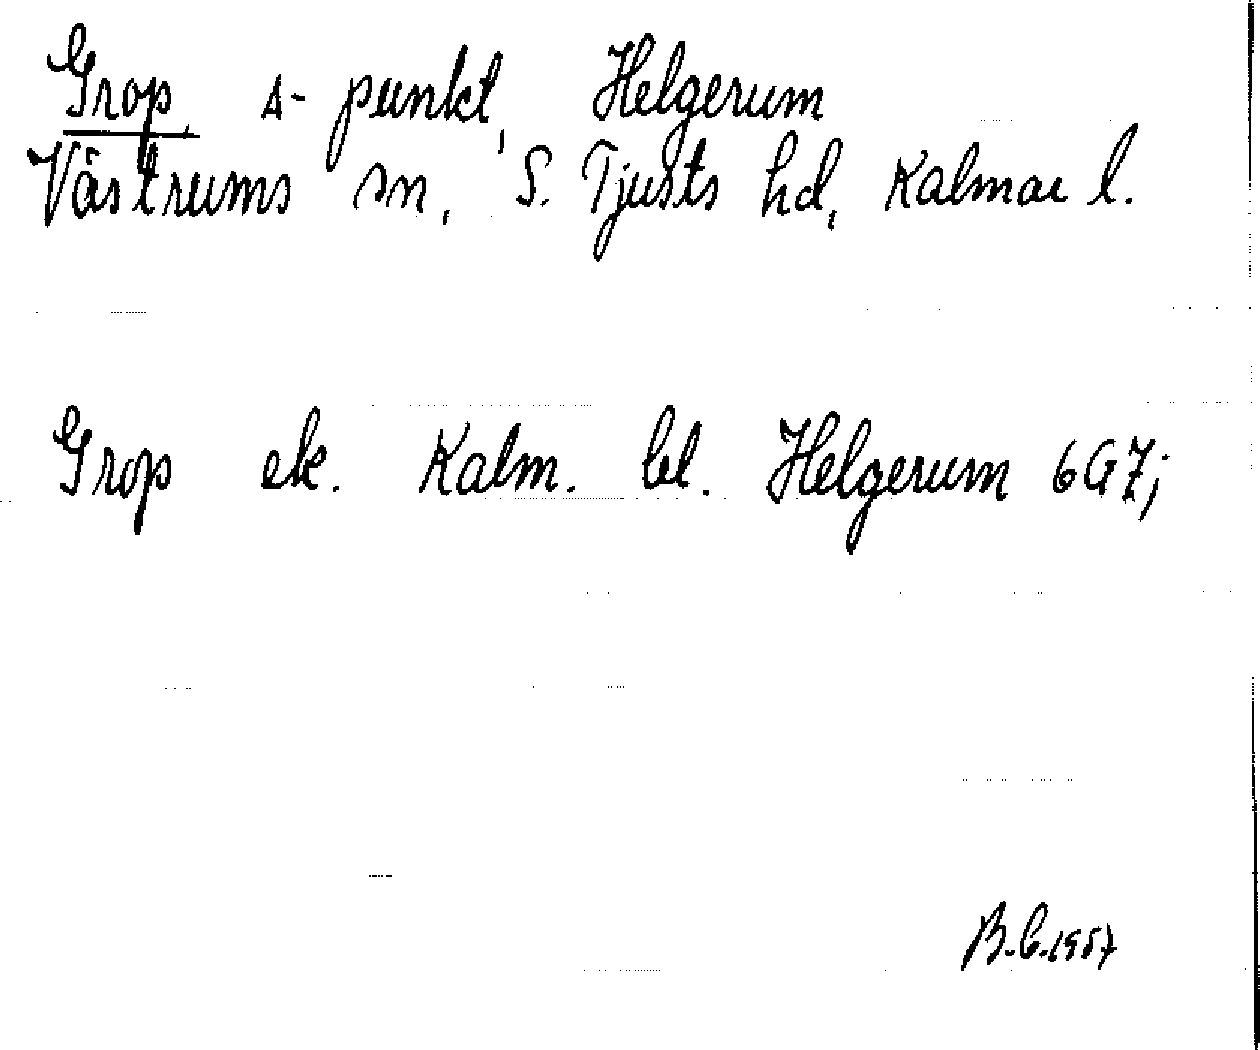 Grop, Δ-punkt, Helgerum
Västrums sn, S. Tjusts hd, Kalmar l.
Grop ek. Kalm. bl. Helgerum 6G7;
B.C.1957